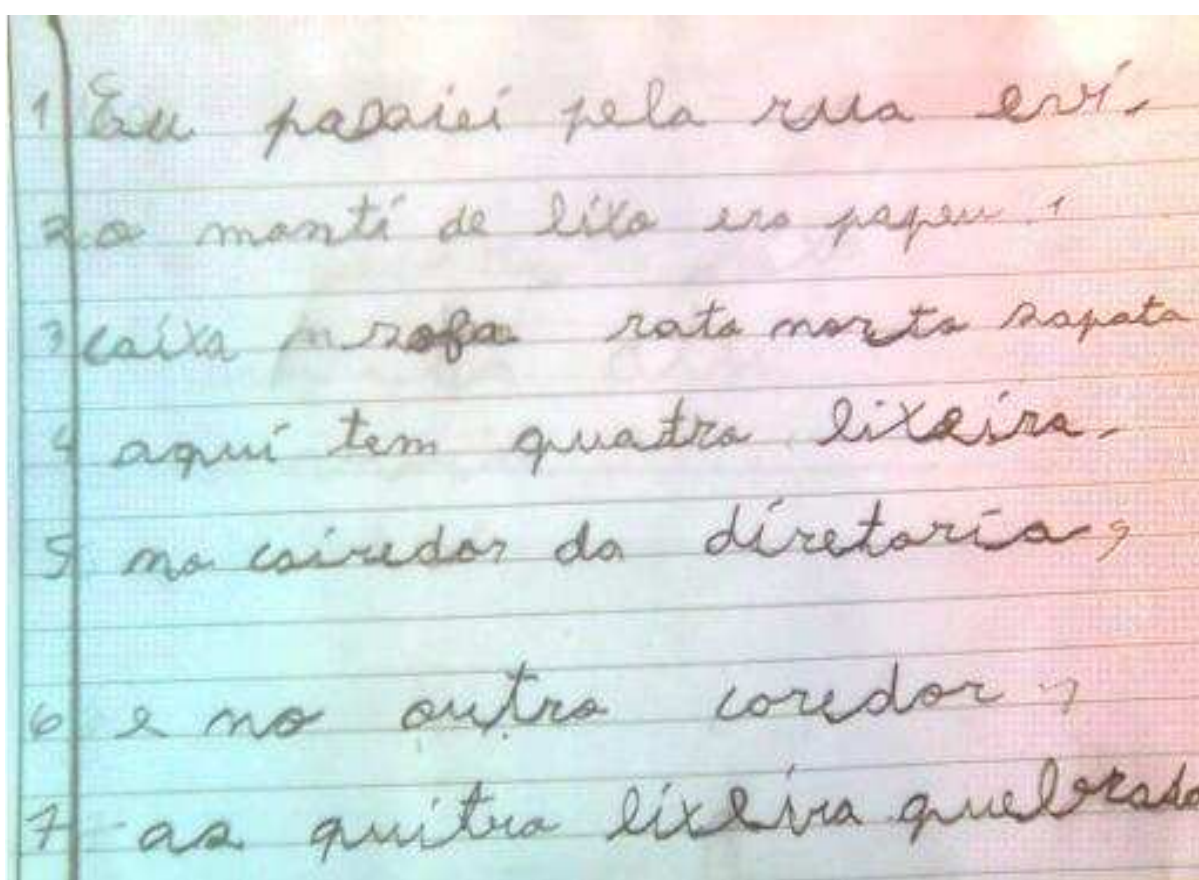 1 Eu pasaiei pela rua evi.
2 o monti de lixo ero papeu.
3 caixa sofa rato morto sapato
4 aqui tem quatro lixeira.
5 no coiredor da diretoria,
6 e no outro coredor,
7 as quitro lixeira quebrada